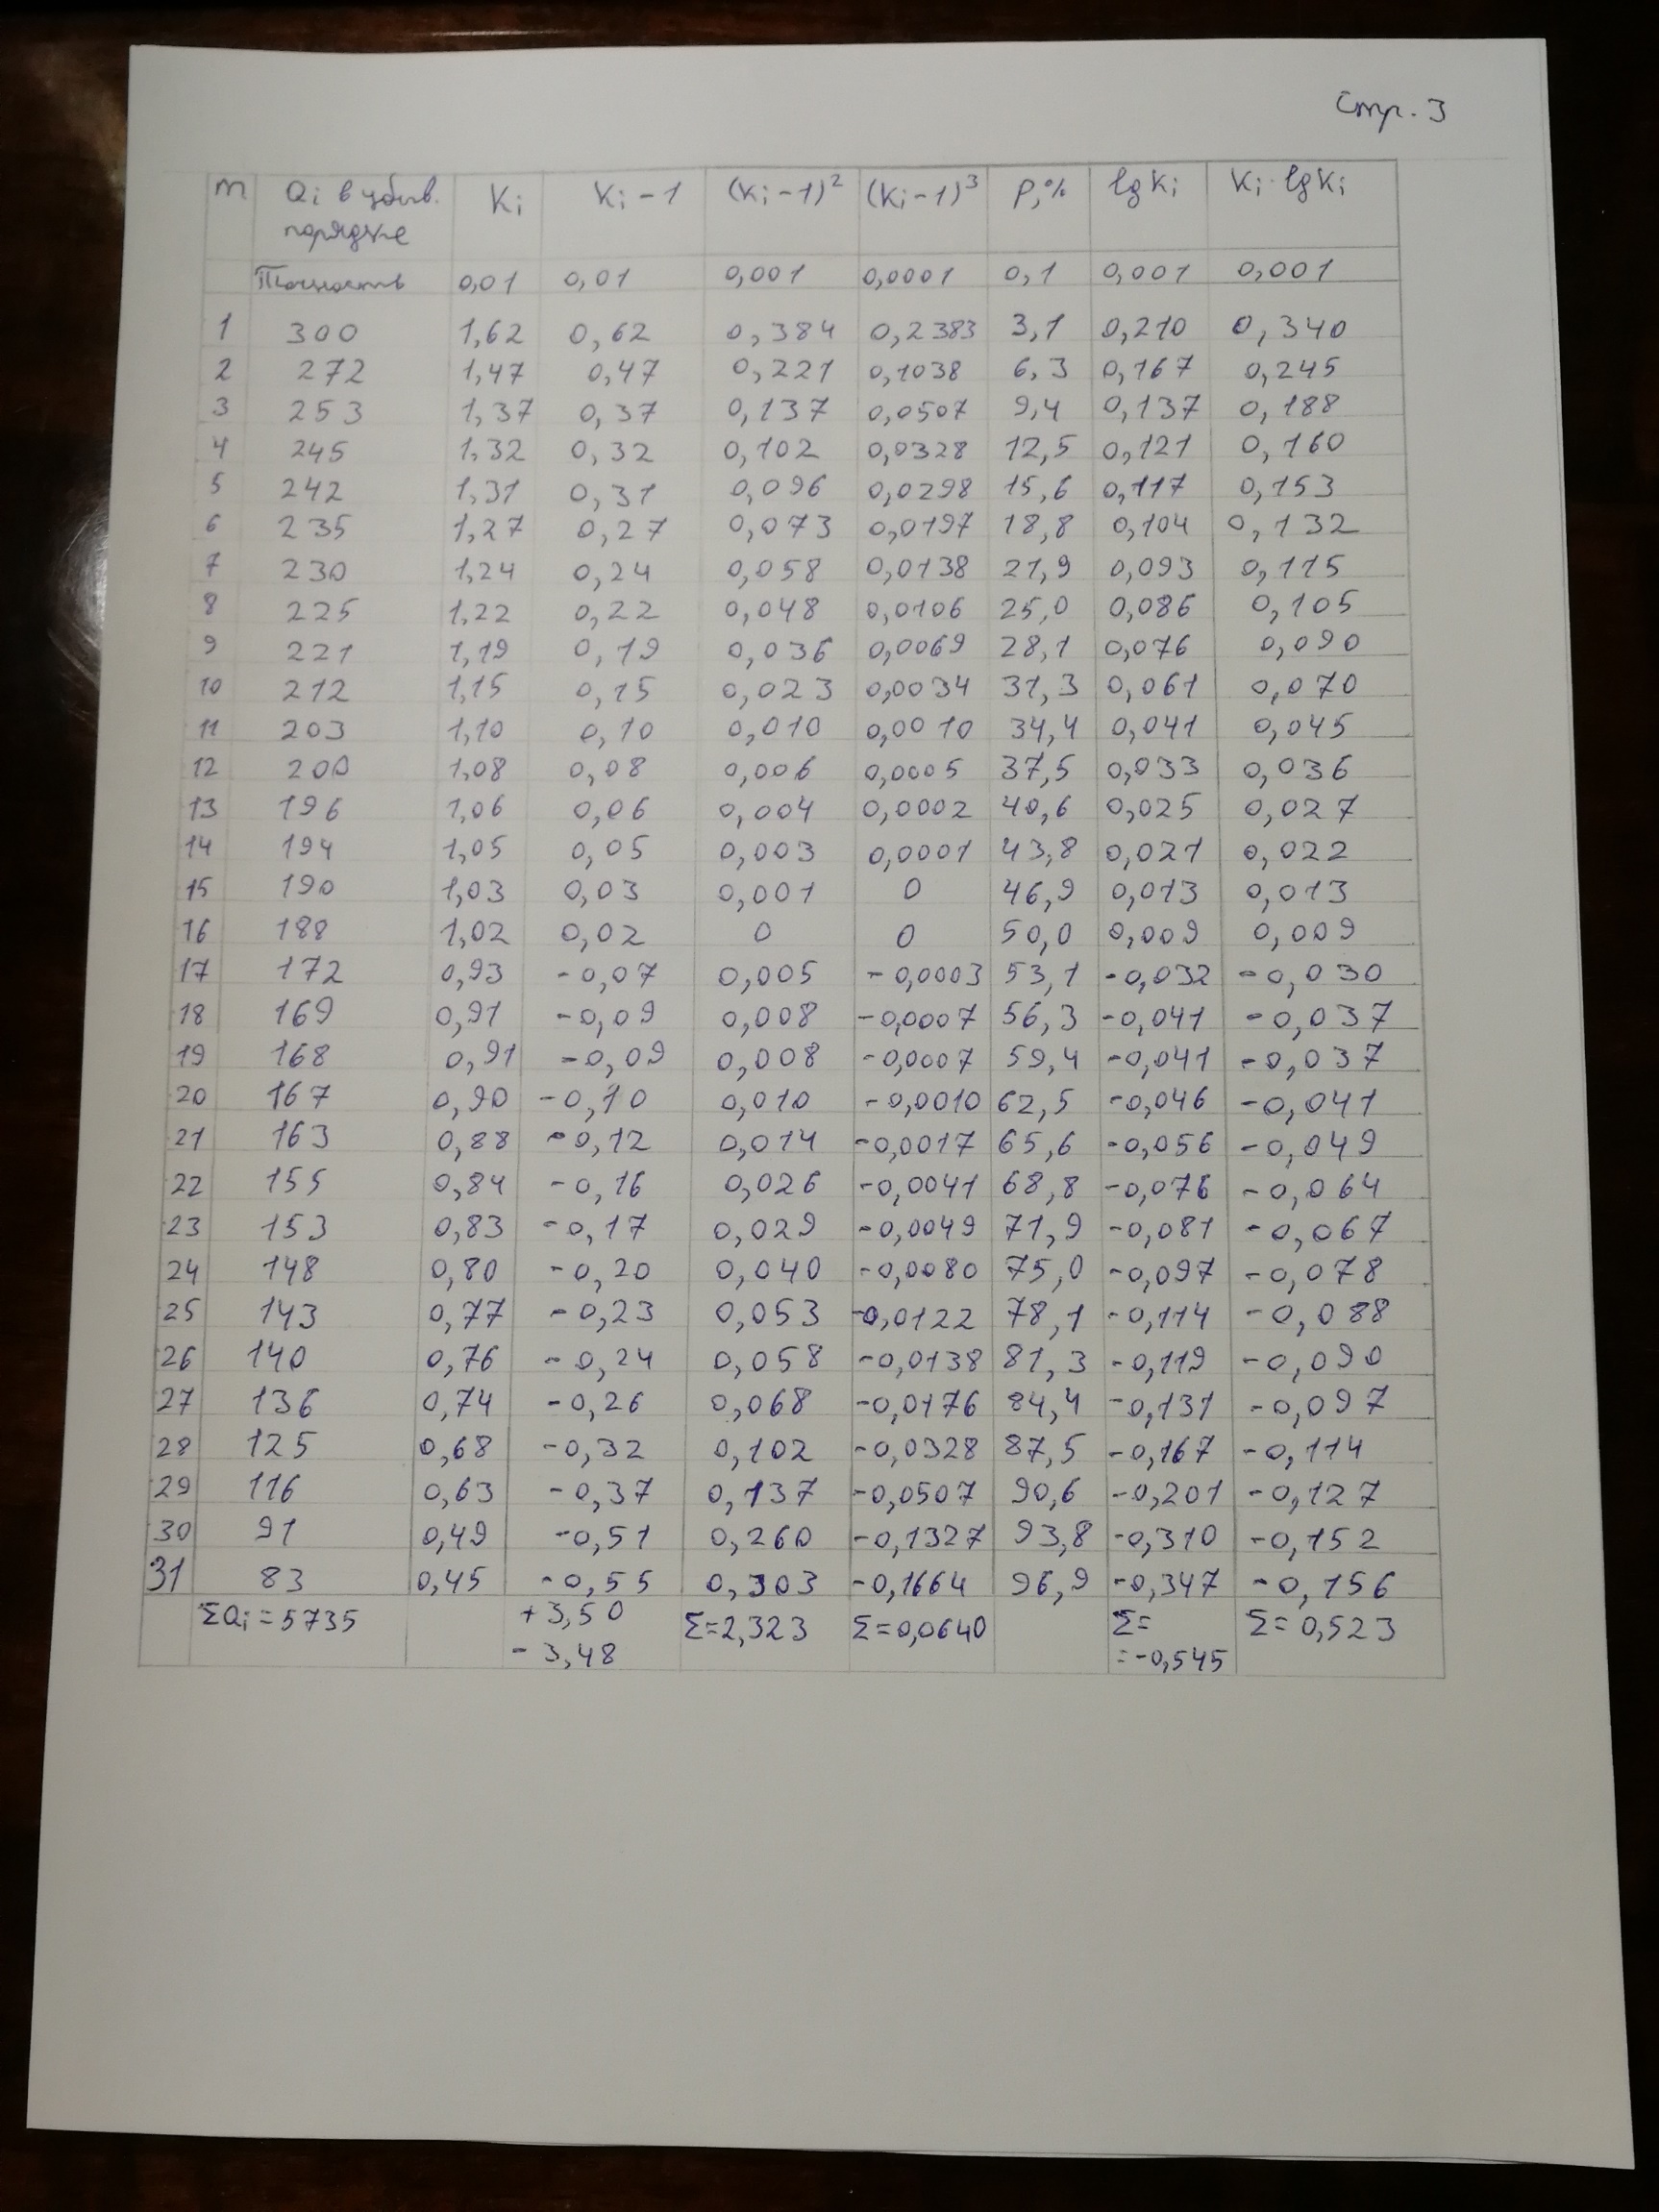 Стр. 3
m Qi в убыв. порядке Ki Ki-1 (Ki-1)² (Ki-1)³ P,% lgKi Ki·lgKi
Точность 0,01 0,01 0,001 0,0001 0,1 0,001 0,001
1 300 1,62 0,62 0,384 0,2383 3,1 0,210 0,340
2 272 1,47 0,47 0,221 0,1038 6,3 0,167 0,245
3 253 1,37 0,37 0,137 0,0507 9,4 0,137 0,188
4 245 1,32 0,32 0,102 0,0328 12,5 0,121 0,160
5 242 1,31 0,31 0,096 0,0298 15,6 0,117 0,153
6 235 1,27 0,27 0,073 0,0197 18,8 0,104 0,132
7 230 1,24 0,24 0,058 0,0138 21,9 0,093 0,115
8 225 1,22 0,22 0,048 0,0106 25,0 0,086 0,105
9 221 1,19 0,19 0,036 0,0069 28,1 0,076 0,090
10 212 1,15 0,15 0,023 0,0034 31,3 0,061 0,070
11 203 1,10 0,10 0,010 0,0010 34,4 0,041 0,045
12 200 1,08 0,08 0,006 0,0005 37,5 0,033 0,036
13 196 1,06 0,06 0,004 0,0002 40,6 0,025 0,027
14 194 1,05 0,05 0,003 0,0001 43,8 0,021 0,022
15 190 1,03 0,03 0,001 0 46,9 0,013 0,013
16 188 1,02 0,02 0 0 50,0 0,009 0,009
17 172 0,93 -0,07 0,005 -0,0003 53,1 -0,032 -0,030
18 169 0,91 -0,09 0,008 -0,0007 56,3 -0,041 -0,037
19 168 0,91 -0,09 0,008 -0,0007 59,4 -0,041 -0,037
20 167 0,90 -0,10 0,010 -0,0010 62,5 -0,046 -0,041
21 163 0,88 -0,12 0,014 -0,0017 65,6 -0,056 -0,049
22 155 0,84 -0,16 0,026 -0,0041 68,8 -0,076 -0,064
23 153 0,83 -0,17 0,029 -0,0049 71,9 -0,081 -0,067
24 148 0,80 -0,20 0,040 -0,0080 75,0 -0,097 -0,078
25 143 0,77 -0,23 0,053 -0,0122 78,1 -0,114 -0,088
26 140 0,76 -0,24 0,058 -0,0138 81,3 -0,119 -0,090
27 136 0,74 -0,26 0,068 -0,0176 84,4 -0,131 -0,097
28 125 0,68 -0,32 0,102 -0,0328 87,5 -0,167 -0,114
29 116 0,63 -0,37 0,137 -0,0507 90,6 -0,201 -0,127
30 91 0,49 -0,51 0,260 -0,1327 93,8 -0,310 -0,152
31 83 0,45 -0,55 0,303 -0,1664 96,9 -0,347 -0,156
ΣQi = 5735 +3,50 Σ=2,323 Σ=0,0640 Σ= Σ=0,523
-3,48 =-0,545